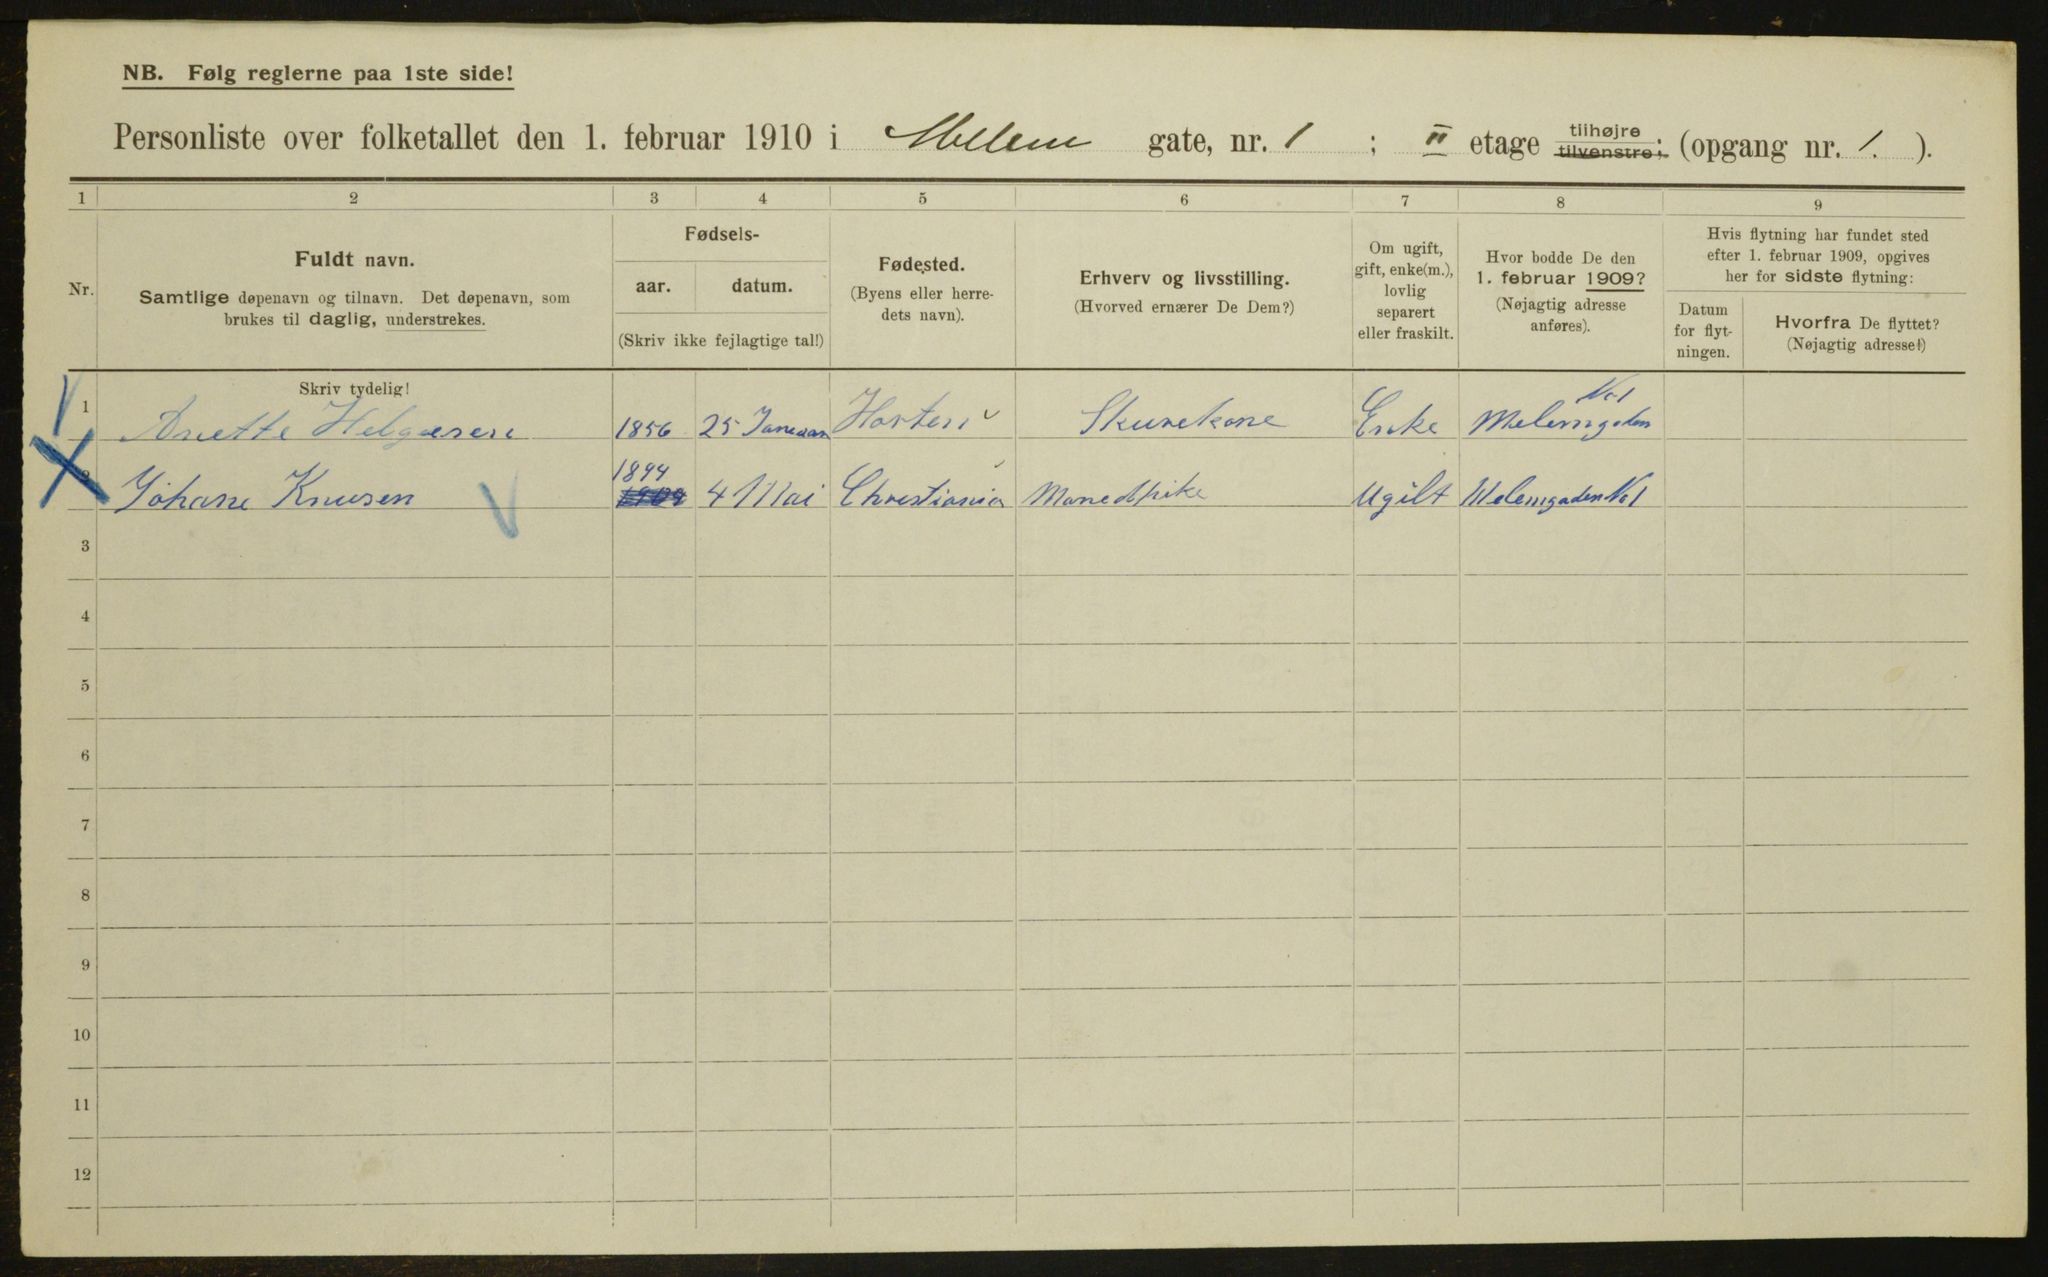 NB. Følg reglerne paa 1ste side!
Personliste over folketallet den 1. februar 1910 i Mellem gate, nr. 1 ; II etage tilhøjre tilvenstre; (opgang nr. 1. ).
1 2 3 4 5 6 7 8 9
Nr.
Fuldt navn.
Samtlige døpenavn og tilnavn. Det døpenavn, som
brukes til daglig, understrekes.
Fødsels-
aar. datum.
(Skriv ikke fejlagtige tal!)
Fødested.
(Byens eller herre-
dets navn).
Erhverv og livsstilling.
(Hvorved ernærer De Dem?)
Om ugift,
gift, enke(m.),
lovlig
separert
eller fraskilt.
Hvor bodde De den
1. februar 1909?
(Nøjagtig adresse
anføres).
Hvis flytning har fundet sted
efter 1. februar 1909, opgives
her for sidste flytning:
Datum
for flyt-
ningen.
Hvorfra De flyttet?
(Nøjagtig adresse!)
Skriv tydelig!
1 Anette Helgesen 1856 25 Januar Horten Skurekone Enke Melemgaden No 1
2 Johane Knusen 1894 4 Mai Christiania Manedspike Ugilt Melemgaden No 1
3
4
5
6
7
8
9
10
11
12